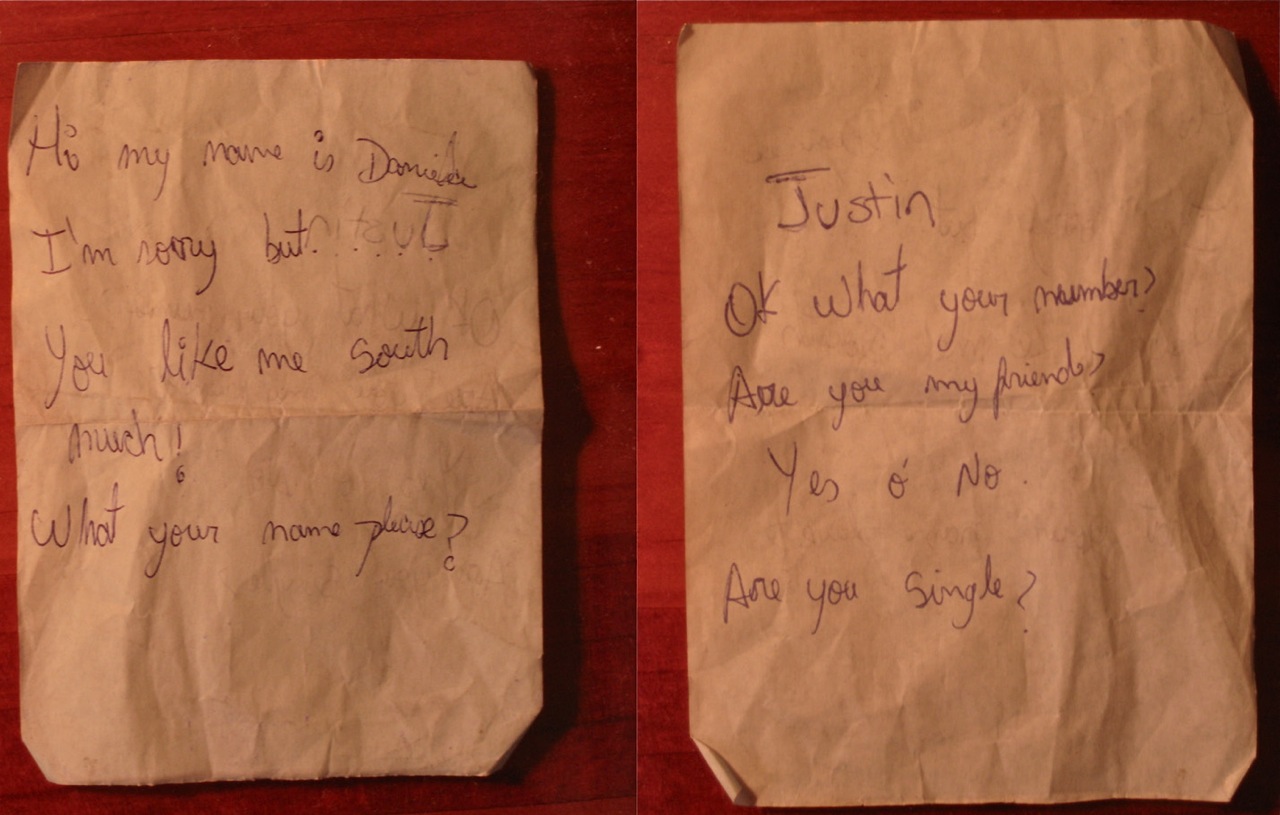 Hi my name is Daniela
I'm sorry but......
You like me south
much!
What your name please?
Justin
Ok What your number?
Are you my friend?
Yes ó No.
Are you single?